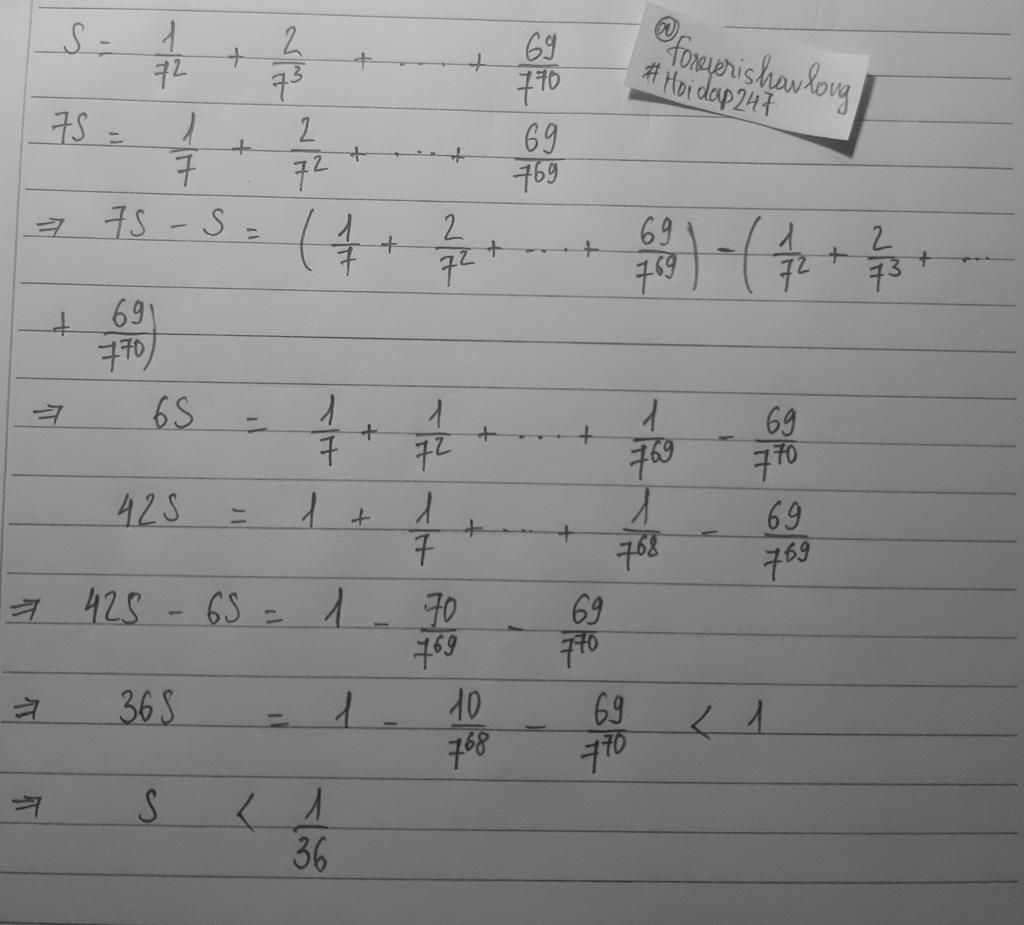 S = 1/7² + 2/7³ + .... + 69/7⁷⁰
@foreverishavloug
#Hoidap247
7S = 1/7 + 2/7² + .... + 69/7⁶⁹
⇒ 7S - S = (1/7 + 2/7² + .... + 69/7⁶⁹) - (1/7² + 2/7³ + ...
+ 69/7⁷⁰)
⇒ 6S = 1/7 + 1/7² + .... + 1/7⁶⁹ - 69/7⁷⁰
42S = 1 + 1/7 + .... + 1/7⁶⁸ - 69/7⁶⁹
⇒ 42S - 6S = 1 - 70/7⁶⁹ - 69/7⁷⁰
⇒ 36S = 1 - 10/7⁶⁸ - 69/7⁷⁰ < 1
⇒ S < 1/36